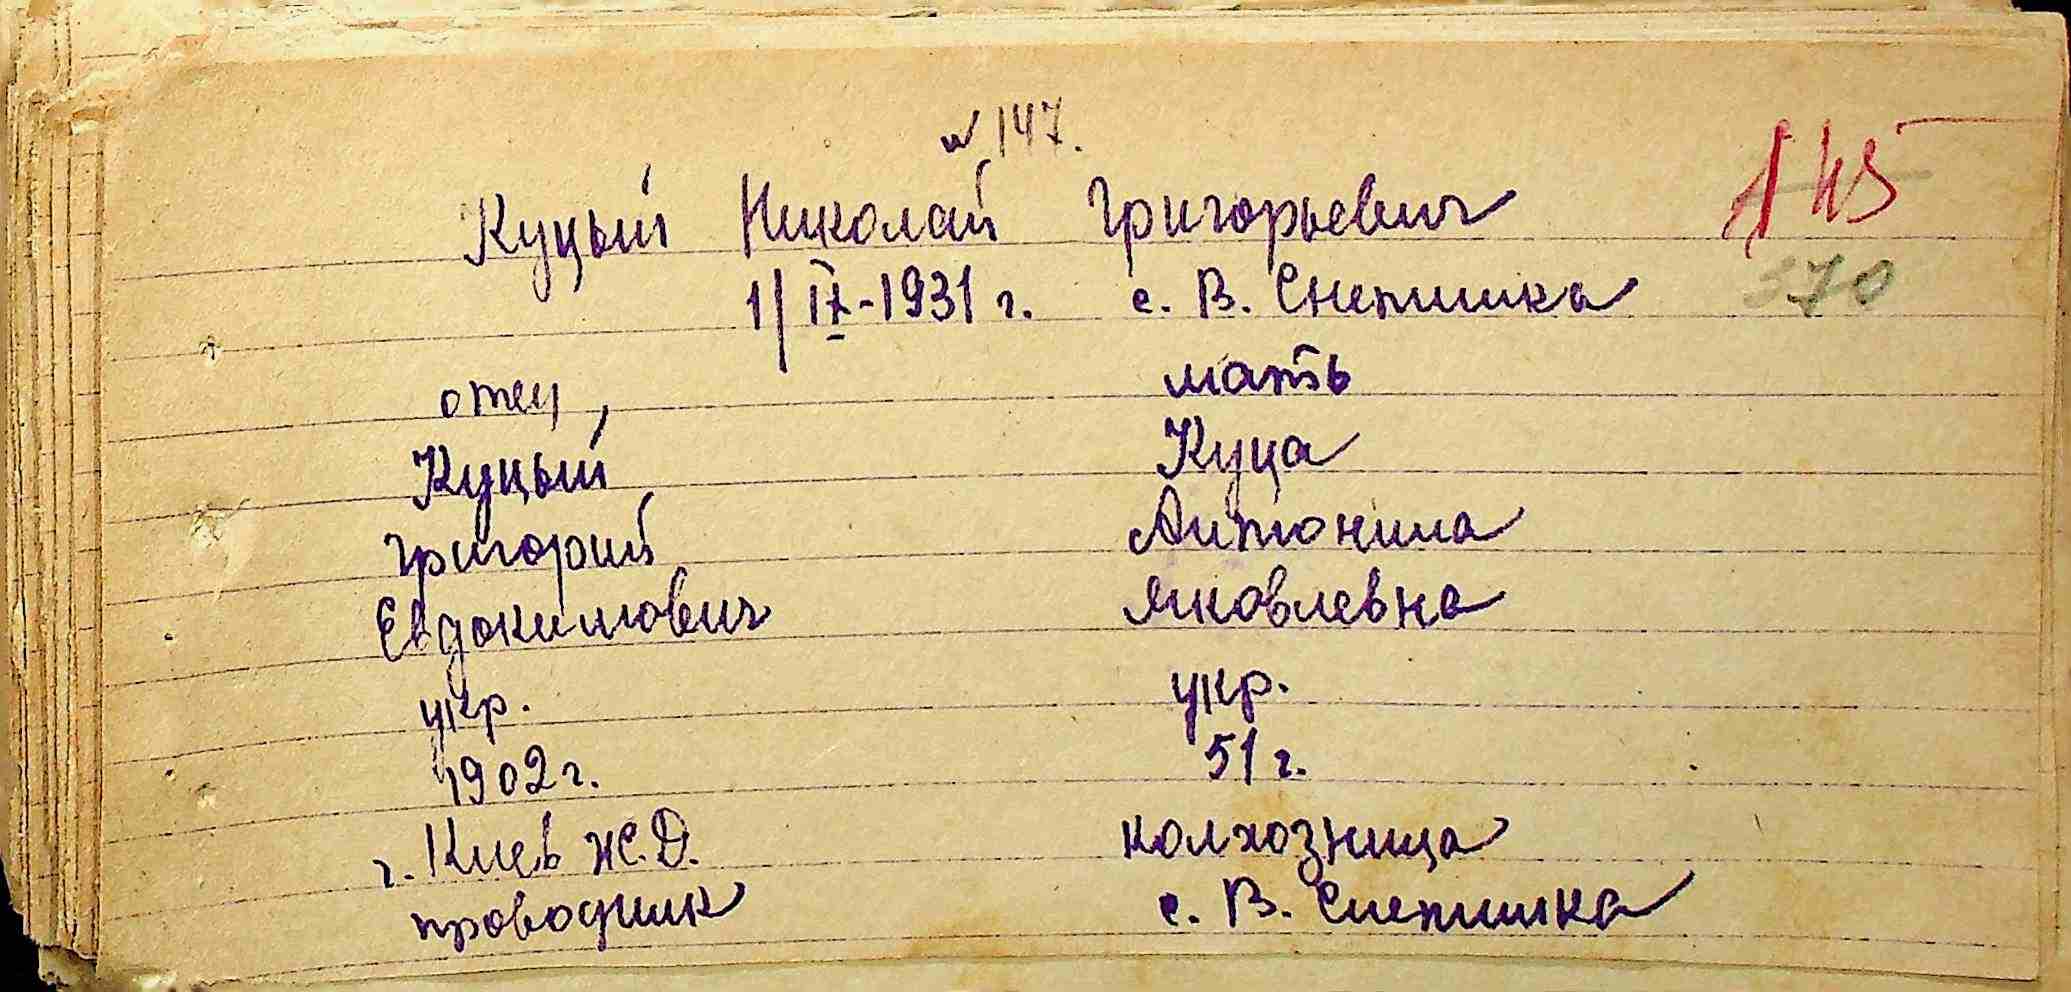 № 147.
145
Куцый Николай Григорьевич
1/IX-1931 г. с. В. Снетинка
370
отец, мать
Куцый Куца
Григорий Антонина
Евдокимович Яковлевна
укр. укр.
1902 г. 51 г.
г. Киев Ж.Д. колхозница
проводник с. В. Снетинка